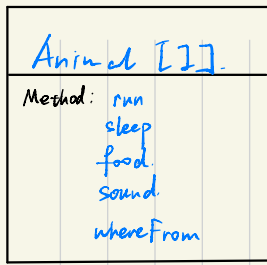 Animal []].
Method: run
sleep
food.
sound.
whereFrom